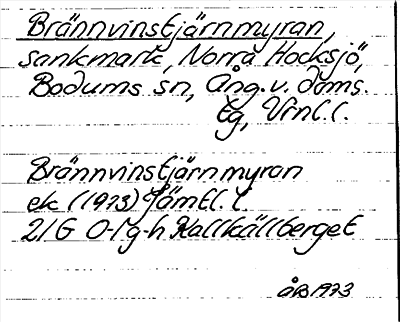 Brännvinstjärnmyran,
sankmark, Norra Hocksjö,
Bodums sn, Ång.v. doms.
tg, Vrnl. l.
Brännvinstjärnmyran
ek (1973) Jämtl. l.
21G 0-1g-h Kallkällberget
ÅB 1973